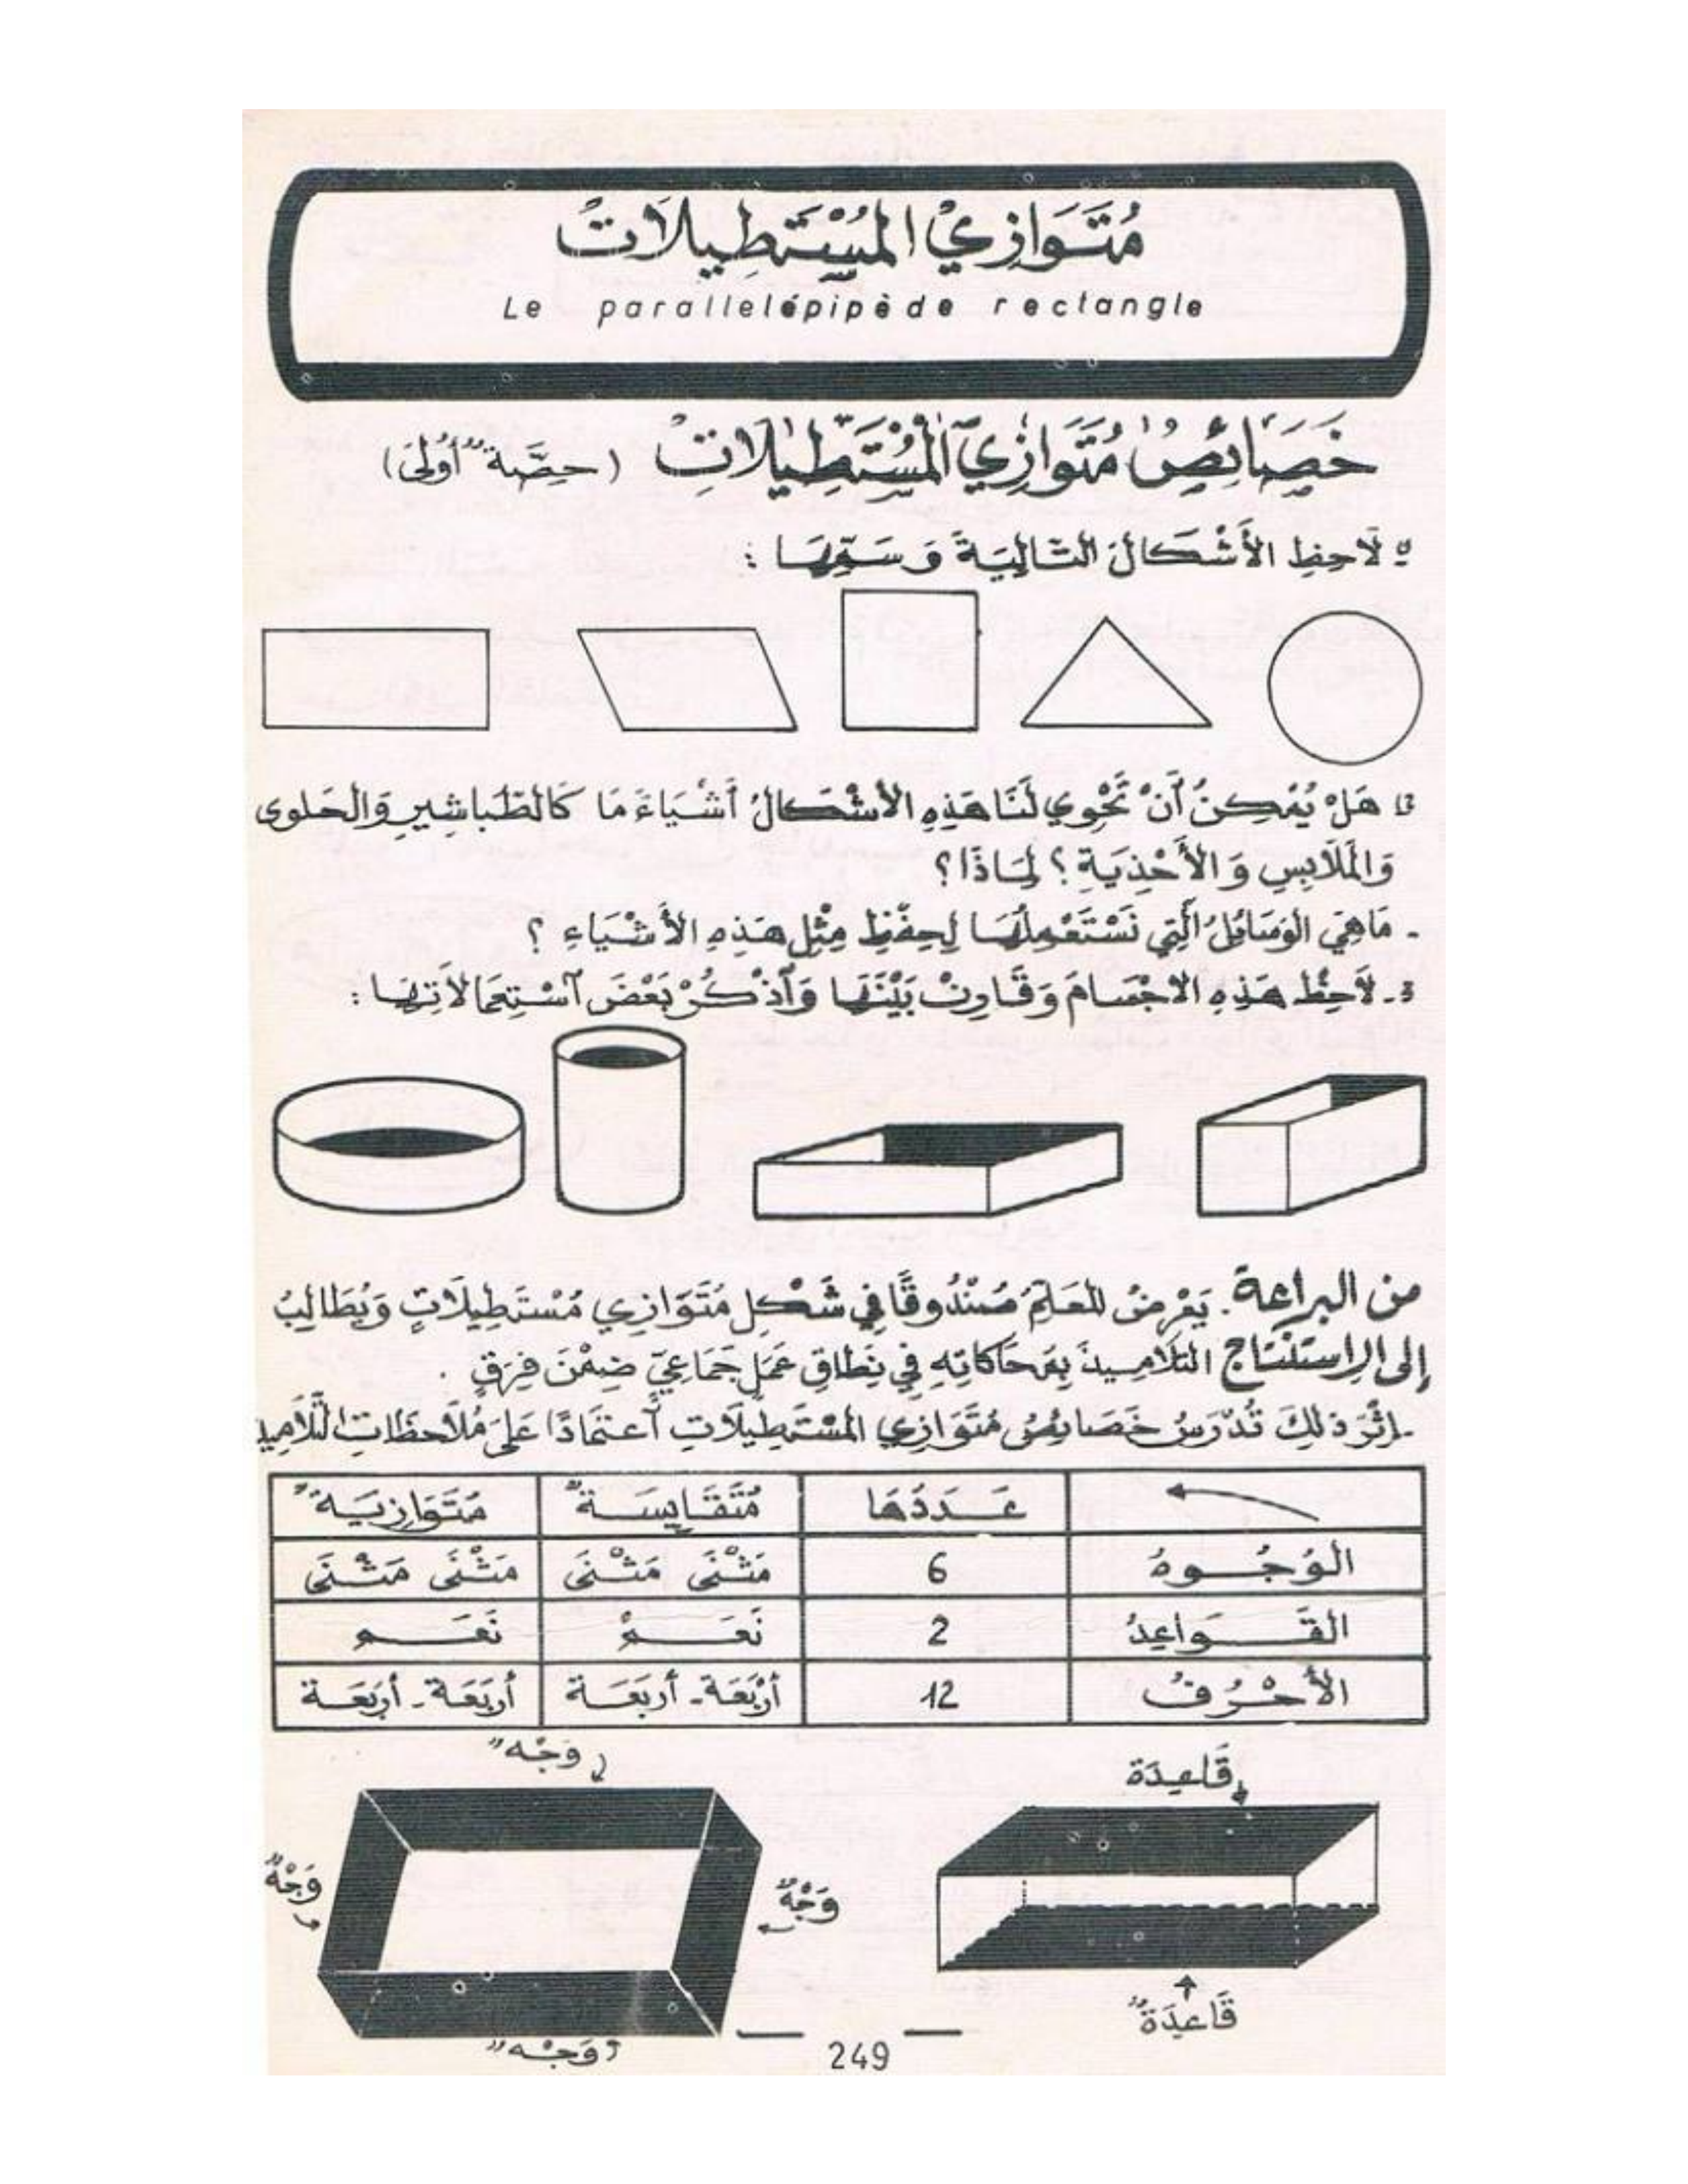 مُتَوَازِي المُسْتَطِيلَاتْ
Le parallelépipède rectangle
خَصَائِصُ مُتَوَازِي ٱلْمُسْتَطِيلَاتِ (حِصَّة أُولَى)
لَاحِظِ الأَشْكَالَ التَّالِيَةَ وَسَمِّهَا :
هَلْ يُمْكِنُ أَنْ تَحْوِي لَنَا هَذِهِ الأَشْكَالُ أَشْيَاءَ مَا كَالطَّبَاشِيرِ وَالحَلْوَى
وَالمَلَابِسِ وَالأَحْذِيَةِ ؟ لِمَاذَا ؟
- مَا هِيَ الوَسَائِلُ الَّتِي نَسْتَعْمِلُهَا لِحِفْظِ مِثْلِ هَذِهِ الأَشْيَاءِ ؟
3- لَاحِظْ هَذِهِ الاجْسَامَ وَقَارِنْ بَيْنَهَا وَٱذْكُرْ بَعْضَ ٱسْتِعْمَالَاتِهَا :
من البراعة . يَعْرِضُ المُعَلِّمُ صُنْدُوقًا فِي شَكْلِ مُتَوَازِي مُسْتَطِيلَاتٍ وَيُطَالِبُ
إلى الاستنتاج التَّلَامِيذَ بِمُحَاكَاتِهِ فِي نِطَاقِ عَمَلٍ جَمَاعِيٍّ ضِمْنَ فِرَقٍ .
- إِثْرَ ذَلِكَ تُدْرَسُ خَصَائِصُ مُتَوَازِي المُسْتَطِيلَاتِ ٱعْتِمَادًا عَلَى مُلَاحَظَاتِ التَّلَامِيذِ
عَدَدُهَا مُتَقَايِسَةٌ مُتَوَازِيَةٌ
الوُجُوهُ 6 مَثْنَى مَثْنَى مَثْنَى مَثْنَى
القَوَاعِدُ 2 نَعَمْ نَعَم
الأَحْرُفُ 12 أَرْبَعَة - أَرْبَعَة أَرْبَعَة - أَرْبَعَة
وَجْه
قَاعِدَة
وَجْهٌ
وَجْهٌ
قَاعِدَةٌ
وَجْه
249